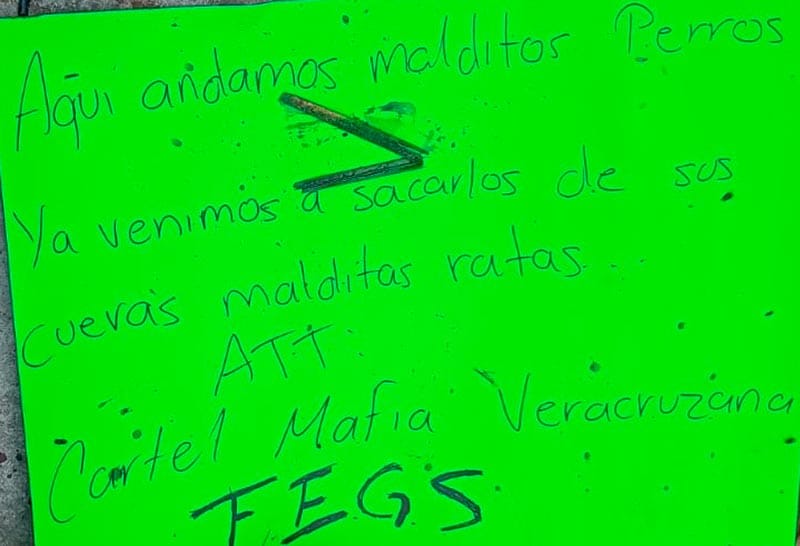 Aqui andamos malditos Perros
Ya venimos a sacarlos de sus
cuevas malditas ratas...
ATT.
Cartel Mafia Veracruzana
FEGS